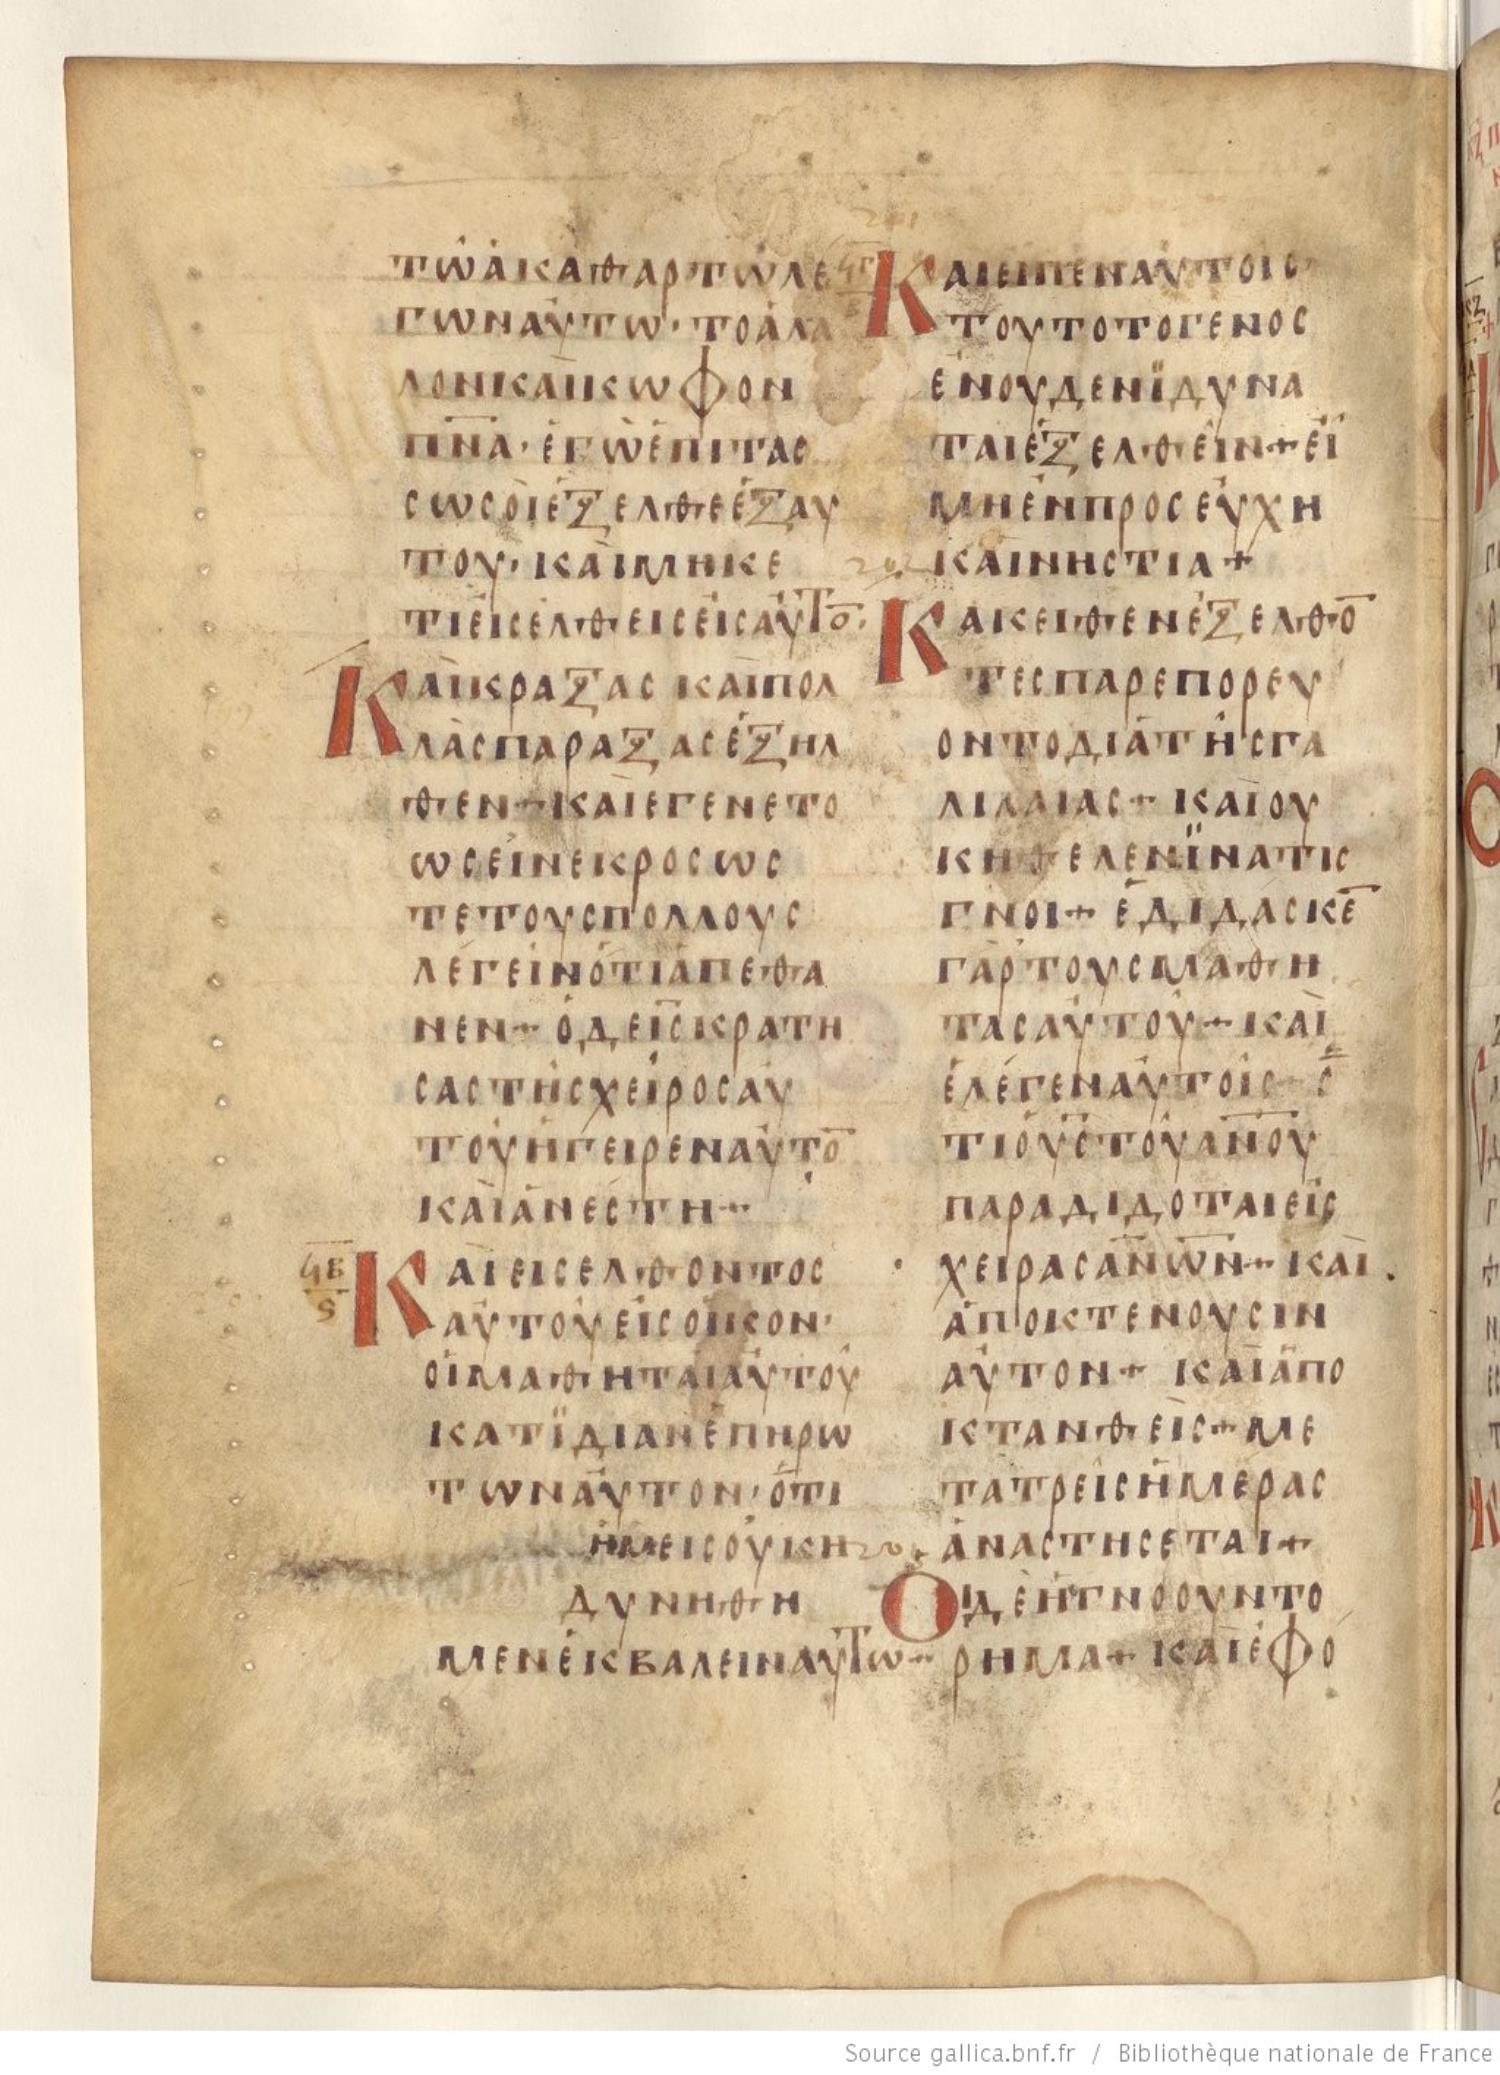 τω ακαθαρτω λε
γων αυτω· το αλα
λον και κωφον
π̅ν̅α̅· εγω επιτας
σω σοι εξελθε εξ αυ
του· και μηκε
τι εισελθεις εις αυτο̅·
Και κραξας και πολ
λας παραξας εξηλ
θεν + και εγενετο
ωσει νεκρος ως
τε τους πολλους
λεγειν οτι απεθα
νεν + ο δε ι̅ς̅ κρατη
σας της χειρος αυ
του ηγειρεν αυτο̅
και ανεστη +
ϟβ
ς
Και εισελθοντος
αυτου εις οικον·
οι μαθηται αυτου
κατ ϊδιαν επηρω
των αυτον· οτι
ημεις ουκ η
δυνηθη
μεν εκβαλειν αυτω +
ϟγ
Και ειπεν αυτοις
τουτο το γενος
εν ουδενϊ δυνα
ται εξελθειν + ει
μη εν προσευχη
και νηστια +
Κακειθεν εξελθο̅
τες παρεπορευ
οντο δια της γα
λιλαιας + και ου
κ ηθελεν ϊνα τις
γνοι + εδιδασκε̅
γαρ τους μαθη
τας αυτου + και
ελεγεν αυτοις
τι ο υ̅ς̅ του α̅ν̅ο̅υ̅
παραδιδοται εις
χειρας α̅ν̅ω̅ν̅ + και
αποκτενουσιν
αυτον + και απο
κτανθεις + με
τα τρεις ημερας
αναστησεται +
Οι δε ηγνοουν το
ρημα + και εφο
Source gallica.bnf.fr / Bibliothèque nationale de France